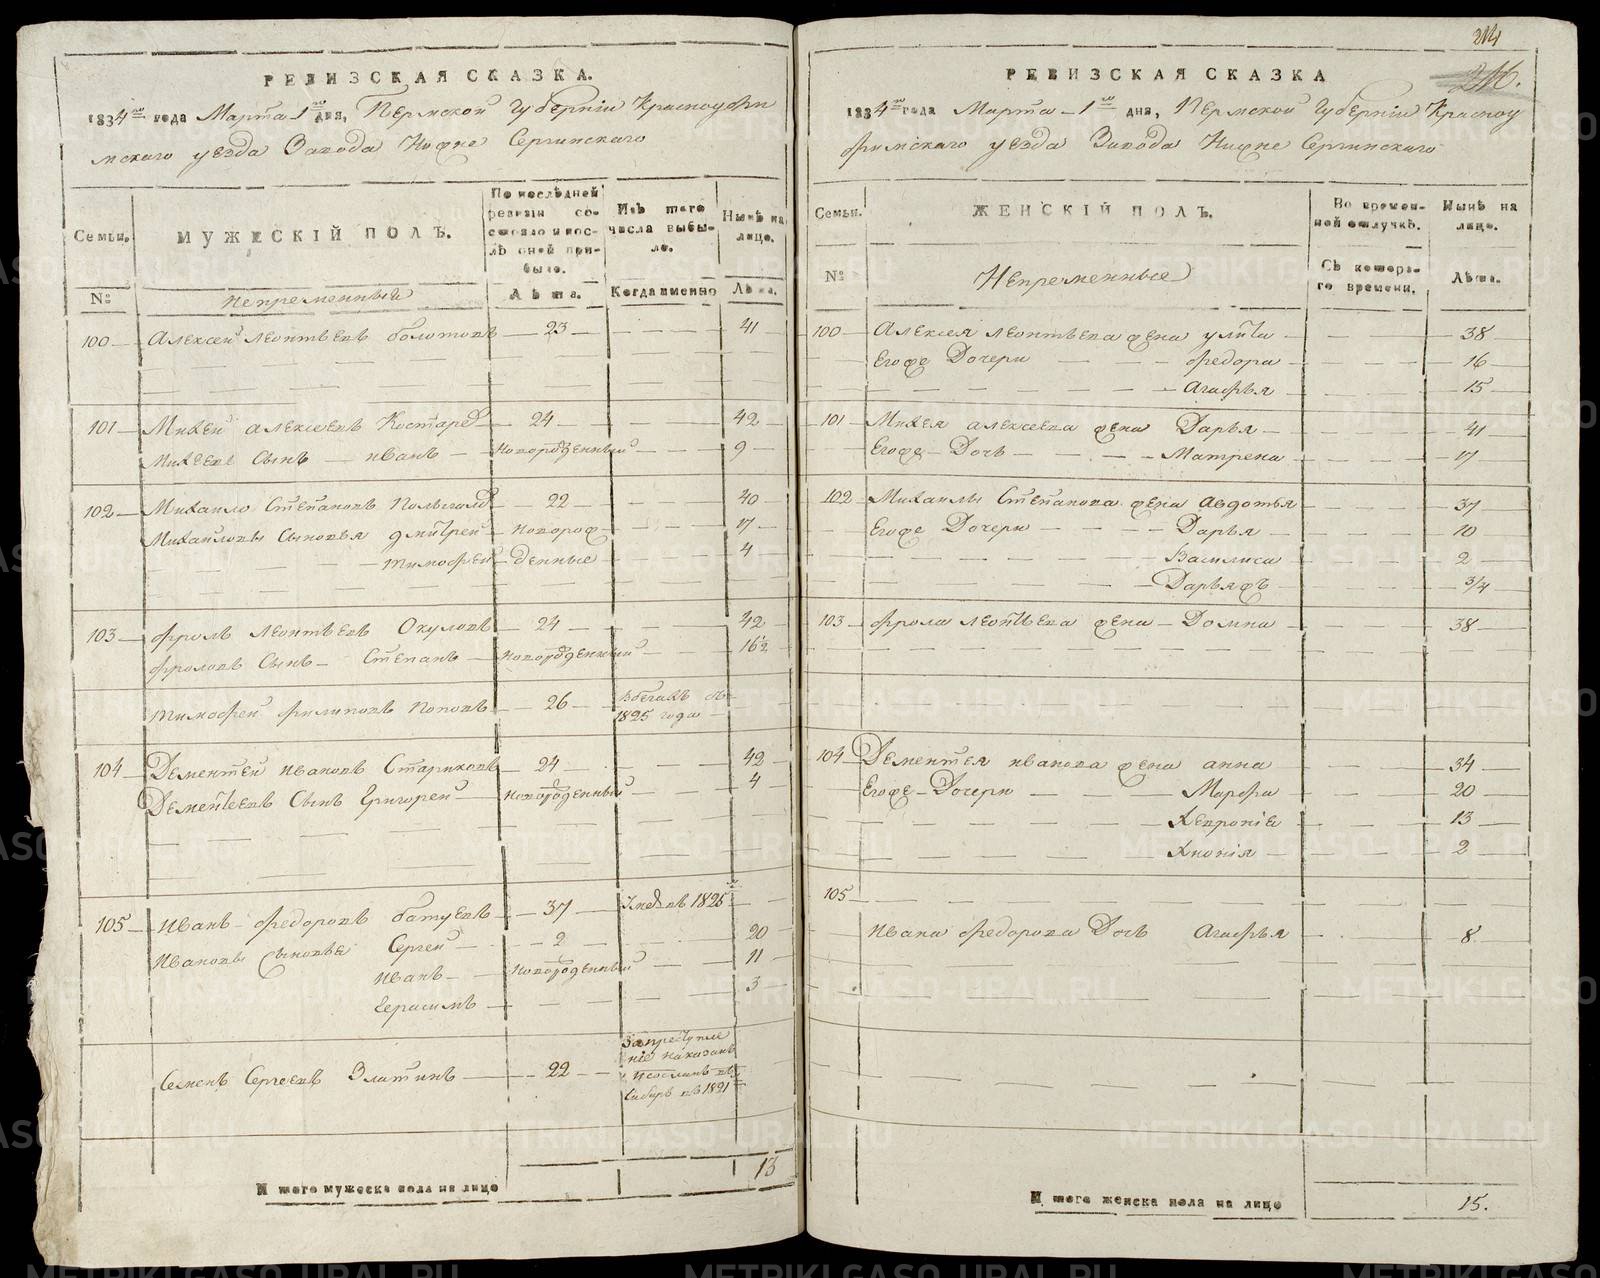 РЕВИЗСКАЯ СКАЗКА.
1834го года Марта 1го дня, Пермской Губернiи Красноуфи
мскаго уезда Завода Нижне Сергинскаго
Семьи.
МУЖЕСКIЙ ПОЛЪ.
По последней ревизiи состояло и после оной прибыло.
Изъ того числа выбыло.
Ныне на лице.
№
Непременныя
Лета.
Когда именно
Лета.
100 Алексей Леонтьевъ Болотовъ 23 41
101 Михей Алексеевъ 24 42
Михеевъ Сынъ Иванъ новорожденный 9
102 Михайло Степановъ 22 40
Михайловы Сыновья Дмитрей новорож 17
Тимофей денные 4
103 Фролъ Леонтьевъ Окуловъ 24 42
Фроловъ Сынъ Степанъ новорожденный 16½
Тимофей Филиповъ Поповъ 26 Вбегахъ съ
1825 года
104 Дементей Ивановъ Стариковъ 24 42
Дементьевъ Сынъ Григорей новорожденный 4
105 Иванъ Федоровъ Батуевъ 37 въ 1825м
Ивановы Сыновье Сергей 2 20
Иванъ новорожденный 11
Герасимъ 3
Семенъ Сергеевъ Златинъ 22 За преступле
нiе наказанъ
и сосланъ въ
Сибирь въ 1821
Итого мужеска пола на лице 13
214
216.
РЕВИЗСКАЯ СКАЗКА
1834го года Марта 1го дня, Пермской Губернiи Красноу
фимскаго уезда Завода Нижне Сергинскаго
Семьи.
ЖЕНСКIЙ ПОЛЪ.
Во временной отлучкѣ.
Ныне на лице.
№
Непременные
Съ котораго времени.
Лета.
100 Алексея Леонтьева жена Улита 38
Егоже Дочери Федора 16
Агафья 15
101 Михея Алексеева жена Дарья 41
Егоже Дочь Матрена 17
102 Михаилы Степанова жена Авдотья 37
Егоже Дочери Дарья 10
Василиса 2
Дарья жъ 3/4
103 Фрола Леонтьева жена Домна 38
104 Дементея Иванова жена Анна 34
Егоже Дочери Марфа 20
Хевронiя 13
Хионiя 2
105
Ивана Федорова Дочь Агафья 8
Итого женска пола на лице 15.
METRIKI.GASO-URAL.RU